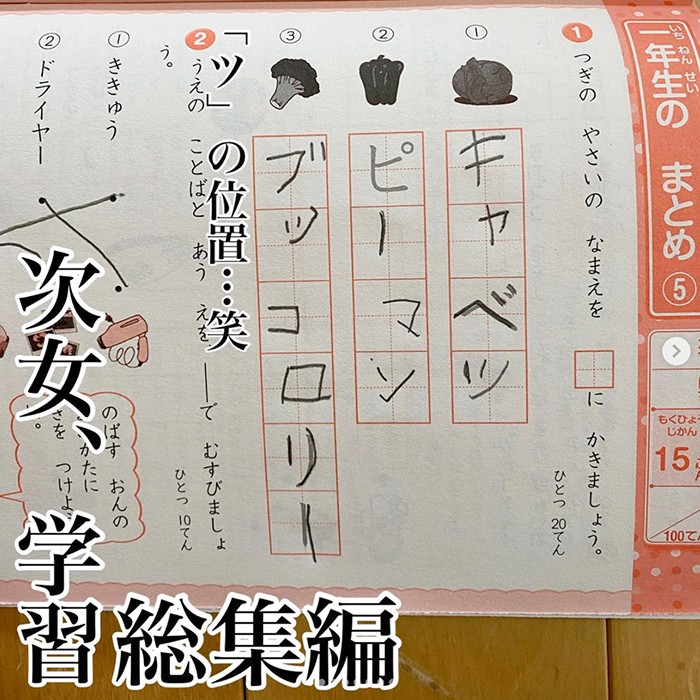 一年生の まとめ ⑤
いち ねん せい
もくひょう
じかん
15
100てん
1 つぎの やさいの なまえを □に かきましょう。
ひとつ 20てん
①
キャベツ
②
ピーマン
③
ブッコロリー
「ツ」の位置…笑
2 うえの ことばと あう えを ――で むすびましょう。
ひとつ 10てん
① ききゅう
② ドライヤー
のばす おんの
かたに
さを つけよう
次女、学習総集編